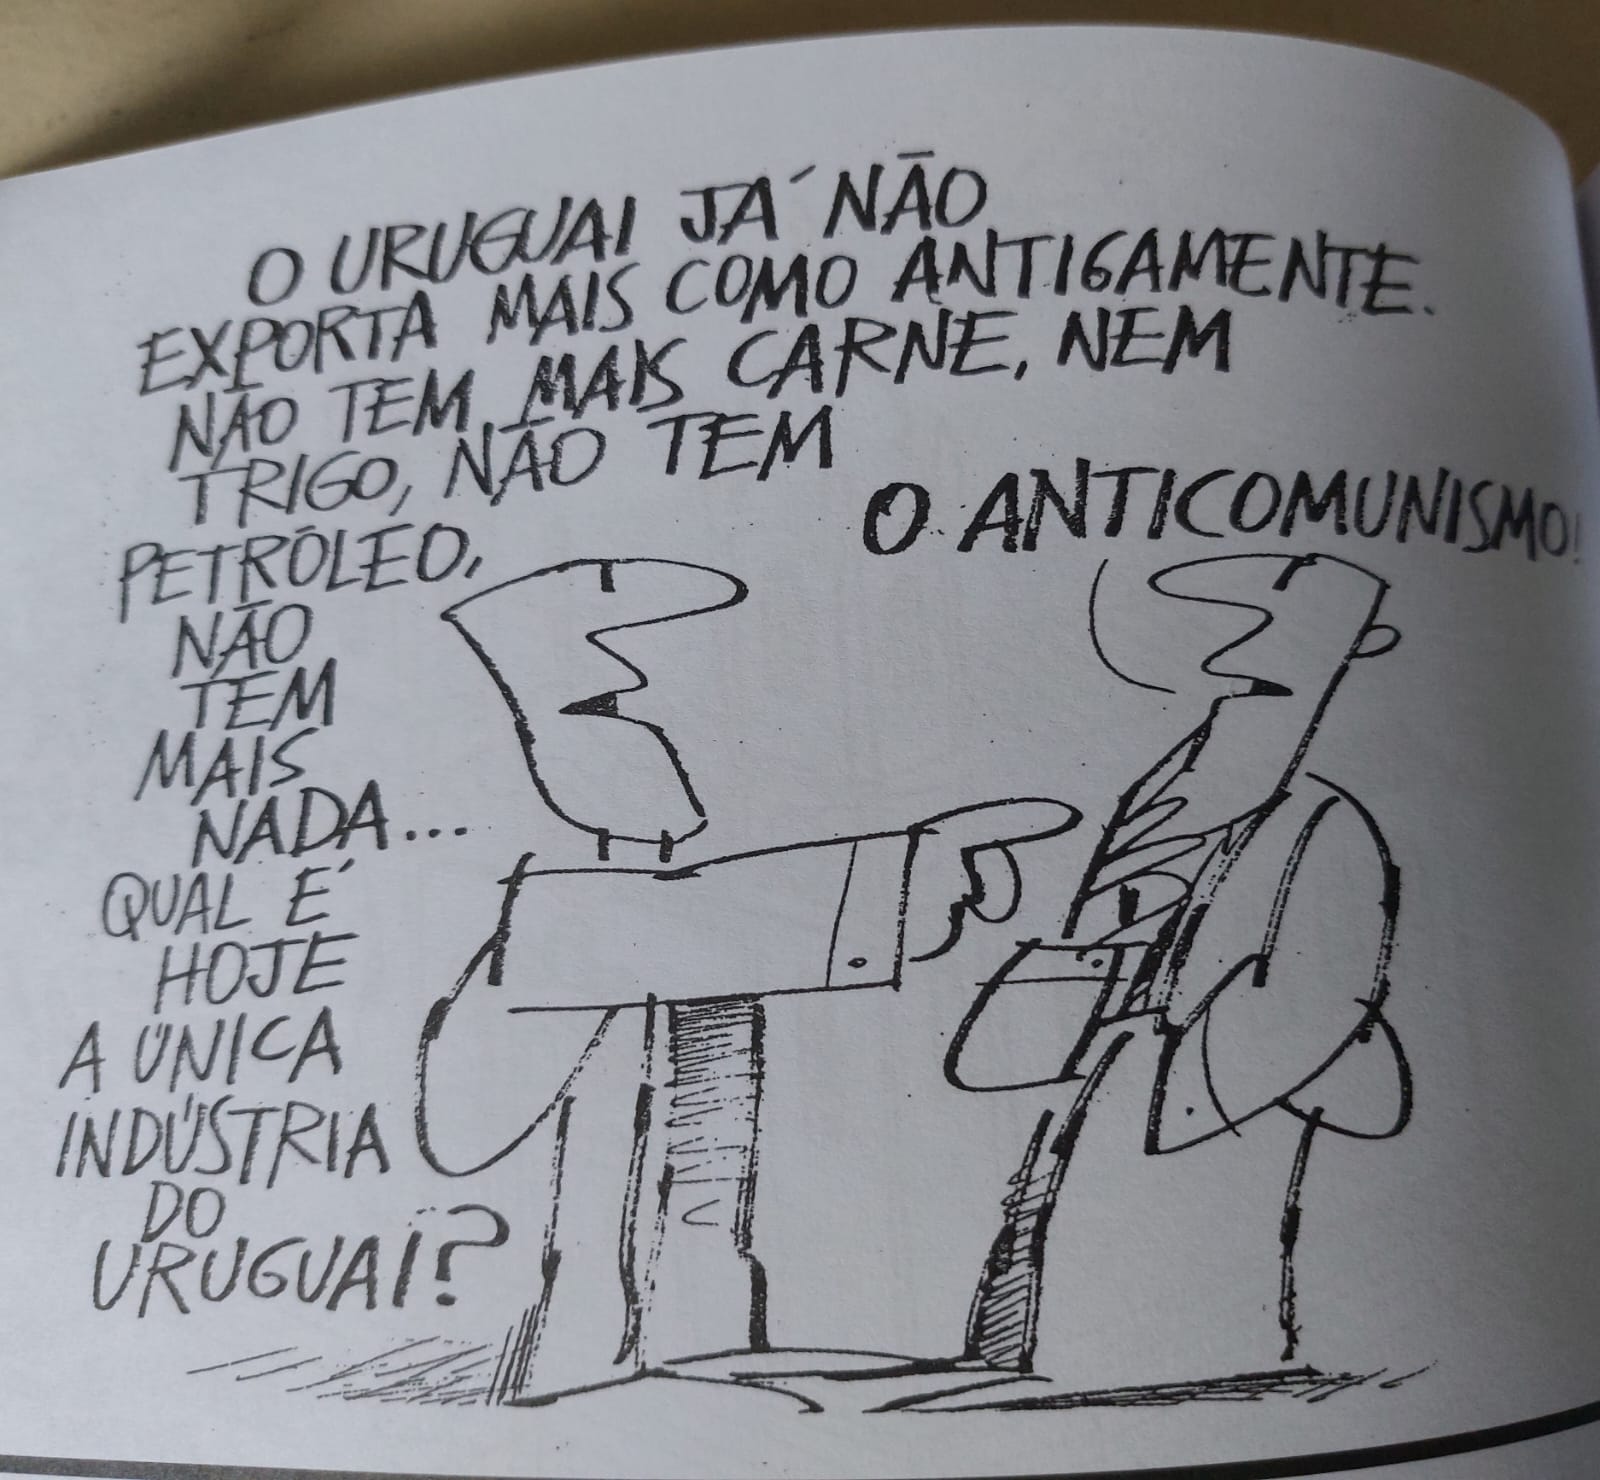 O URUGUAI JÁ NÃO
EXPORTA MAIS COMO ANTIGAMENTE.
NÃO TEM MAIS CARNE, NEM
TRIGO, NÃO TEM
PETRÓLEO,
NÃO
TEM
MAIS
NADA...
QUAL É
HOJE
A ÚNICA
INDÚSTRIA
DO
URUGUAI?
O ANTICOMUNISMO!